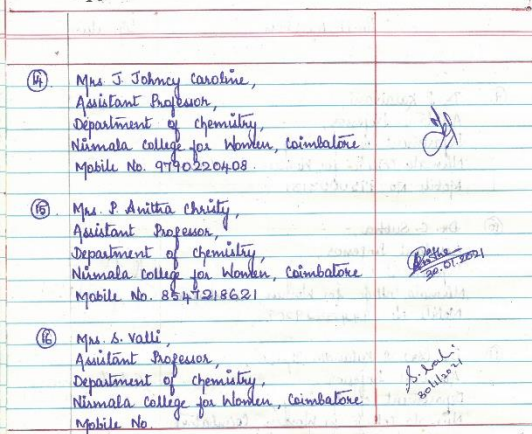 14 Mrs. J. Johncy Caroline,
Assistant Professor,
Department of Chemistry,
Nirmala College for Women, Coimbatore
Mobile No. 9790220408.
15 Mrs. P. Anitha Christy,
Assistant Professor,
Department of chemistry,
Nirmala College for Women, Coimbatore
30.01.2021
Mobile No. 8547218621
16 Mrs. S. Valli,
Assistant Professor,
Department of Chemistry,
S. Valli
30/1/2021
Nirmala College for Women, Coimbatore
Mobile No.